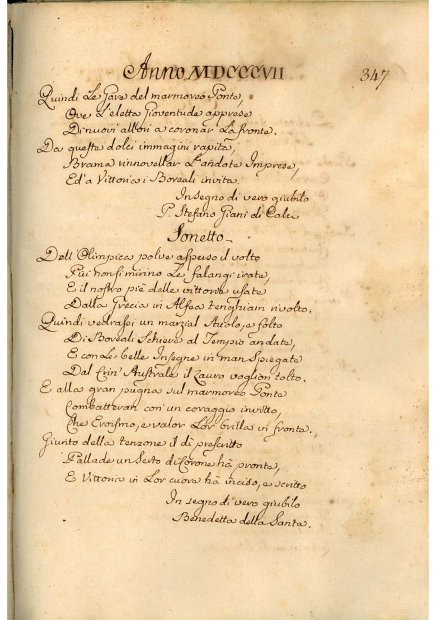 Anno MDCCCVII
347
Quindi Le Gare del marmoreo Ponte,
Ove L'eletta Gioventude apprese
Di nuovi allori a coronar La fronte.
Da queste dolci immagini rapita,
Brama rinnovellar L'andate Imprese,
Ed a Vittoria i Boreali invita.
In segno di vero giubilo
P. Stefano Giani di Calci
Sonetto
Dell'Olimpica polve asperso il volto
Qui non si mirino Le falangi irate,
E il nostro piè delle vittorie usate
Dalla Grecia in Alfea tenghiam rivolto.
Quindi vedrassi un marzial Stuolo, e folto
Di Boreali Schiere al Tempio andate,
E con Le belle Insegne in man Spiegate
Dal Crin' Australe il Lauro voglion tolto.
E alla gran pugna sul marmoreo Ponte
Combatteran con un coraggio invitto,
Che Eroismo, e valor Lor brilla in fronte.
Giunto della tenzone il dì prescritto
Pallade un Serto di Corone hà pronte,
E Vittoria in Lor cuore hà inciso, e scritto
In segno di vero giubilo
Benedetta della Santa.